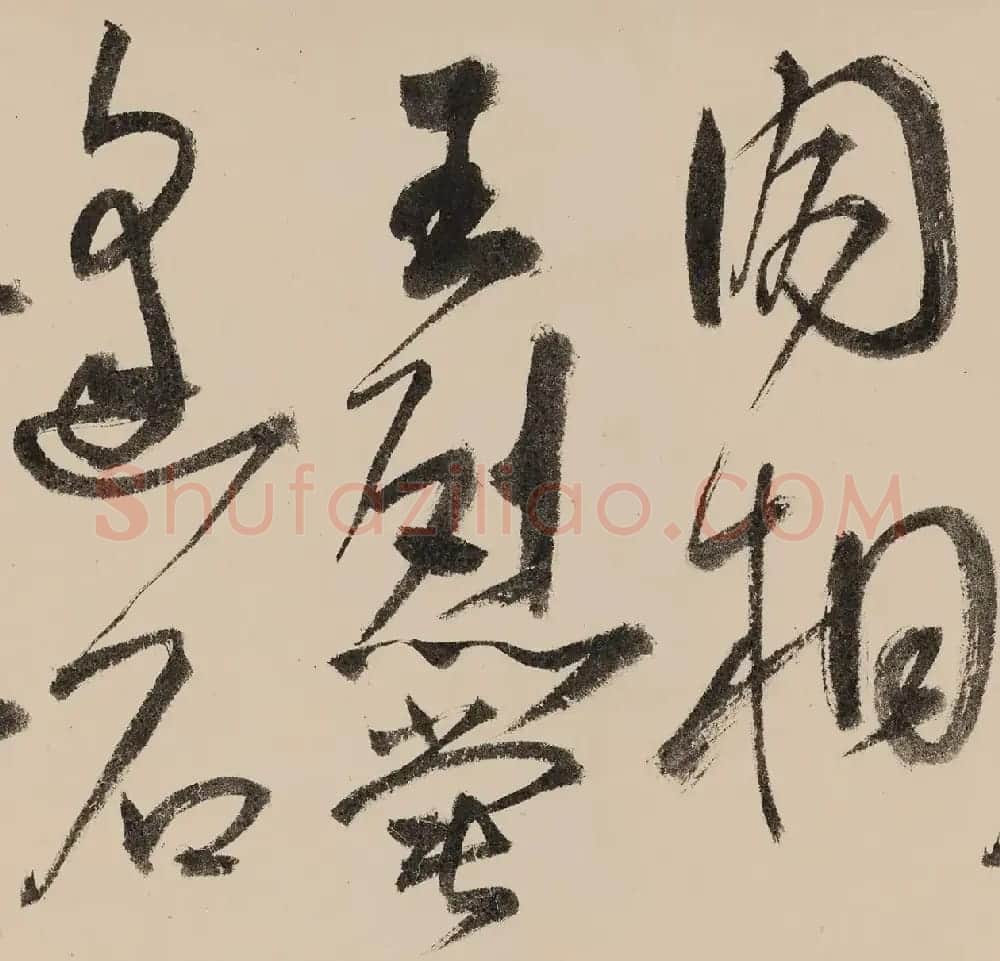 相
王烈嘗
石
Shufaziliao.COM